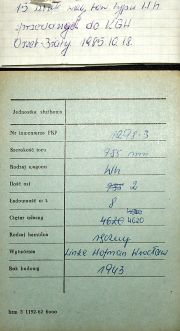 15 szt. wag. tow. typu Wh
przesłanych do KGH
Orzesze 1985.10.18.
Jednostka służbowa
Nr inwentarza PKP 1298-3
Szerokość toru 785 mm
Rodzaj wagonu Wh
Ilość osi 2
Ładowność w t. 8
Ciężar własny 4620 4620
Rodzaj hamulca ręczny
Wytwórnia Linke Hofman Wrocław
Rok budowy 1943
bzm 3 1192-62 6000